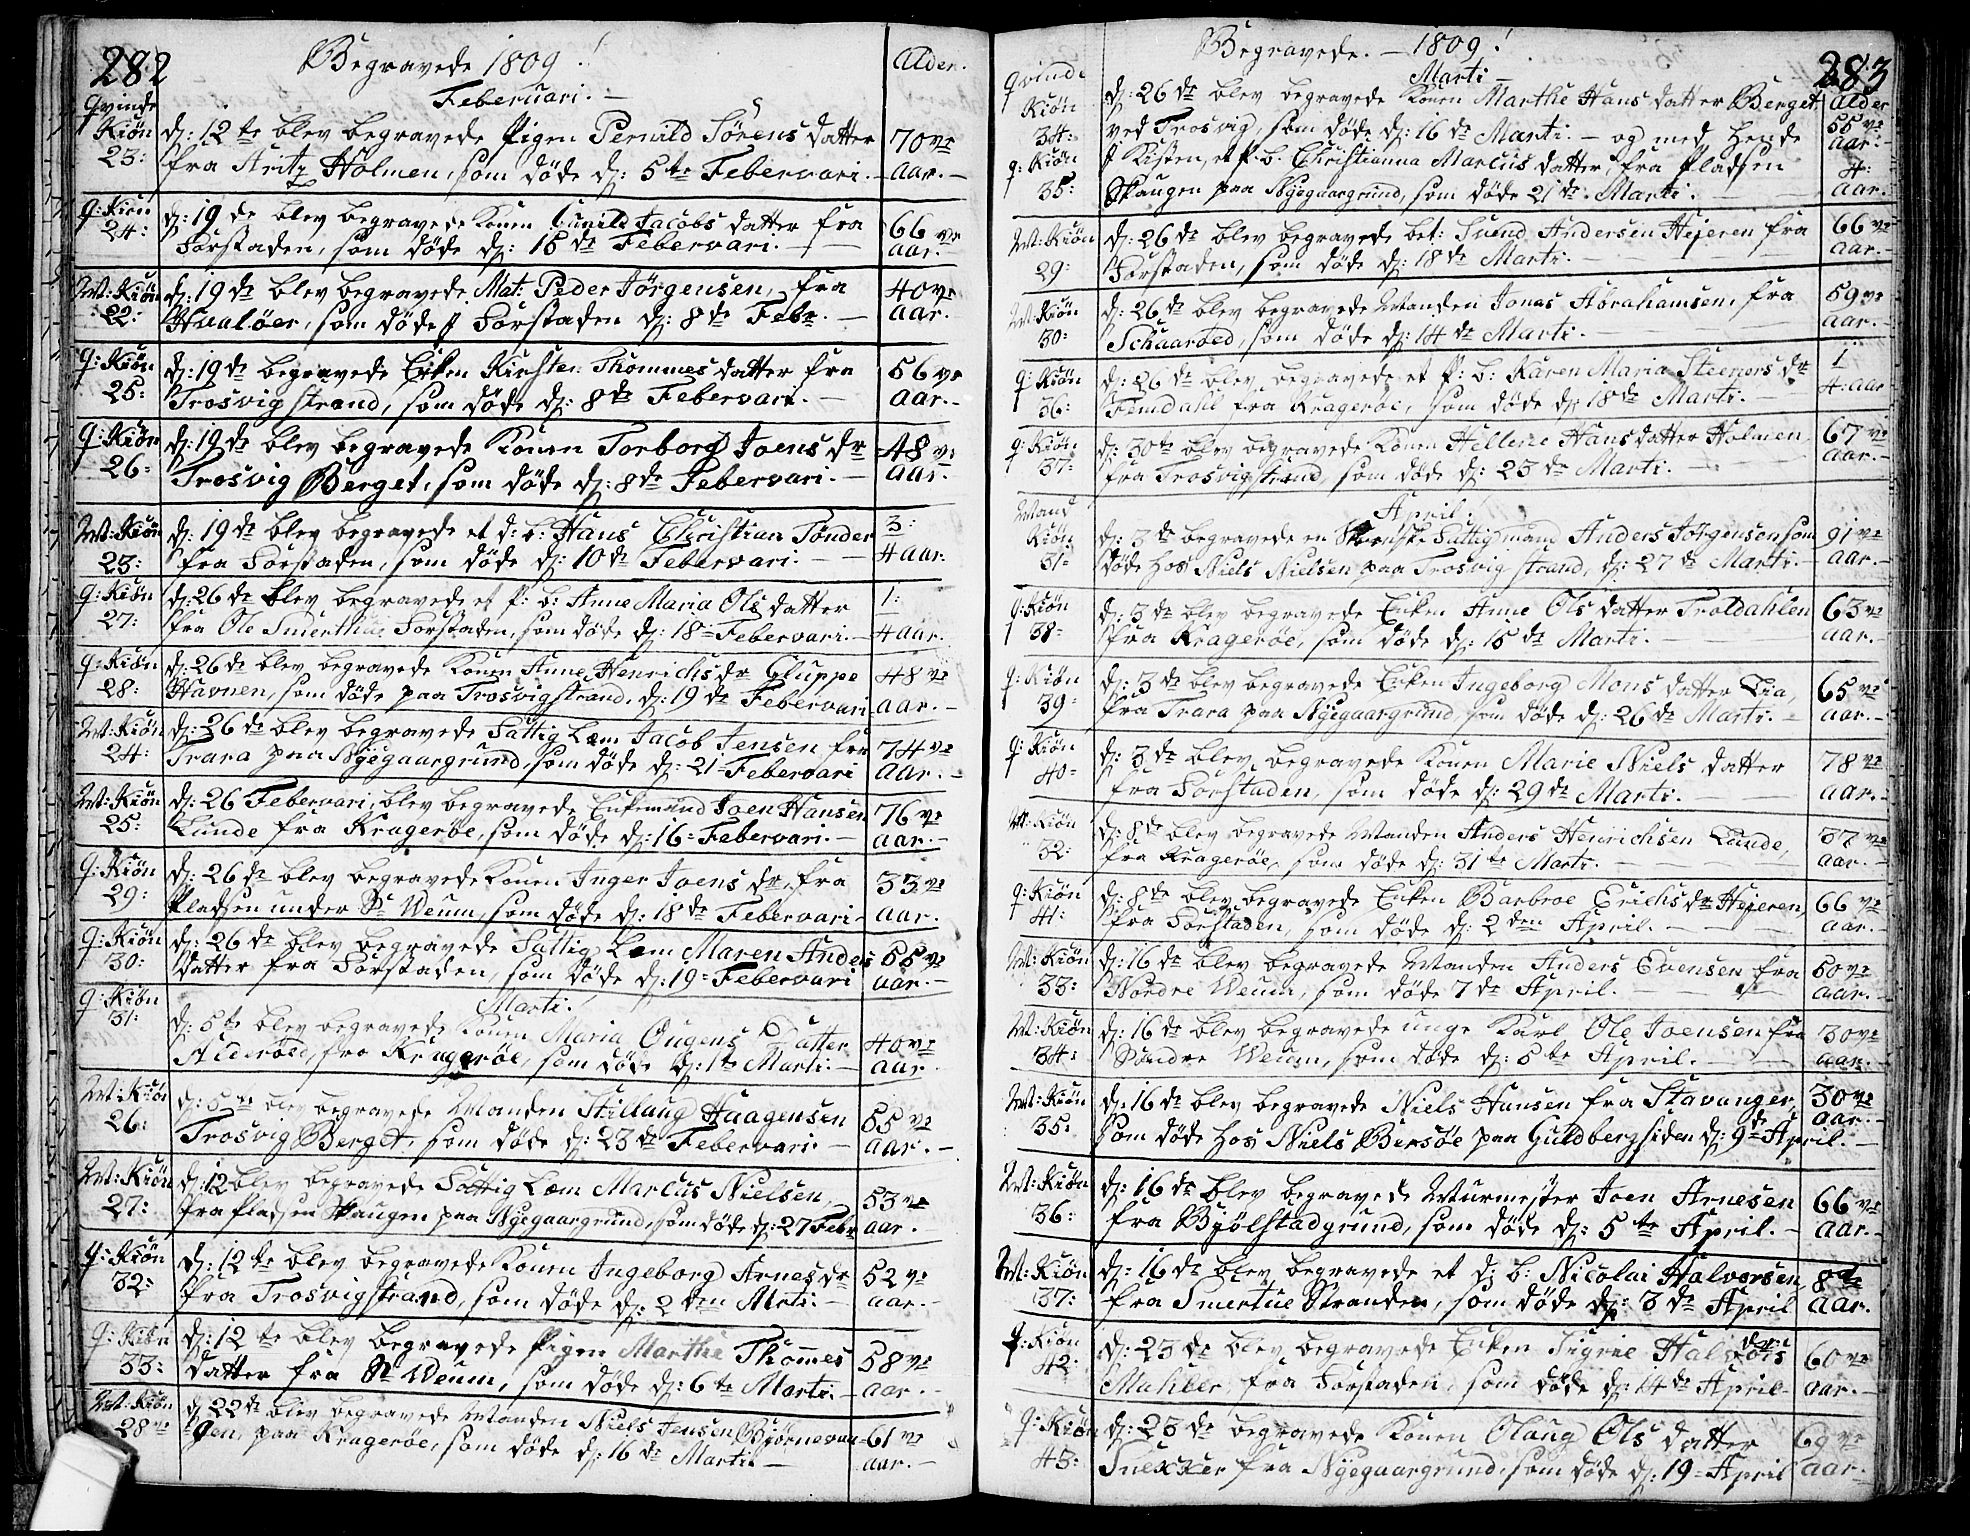 282
Begravede 1809.
Februari.
Alder.
Qvinde Kiøn 23: d: 12te blev begravede Pigen Pernild Sørens datter
fra Holmen, som døde d: 5te Febervari. 70ve Aar.
q: Kiøn 24: d: 19de blev begravede Konen Gunild Jacobs datter fra
Forstaden, som døde d: 15de Febervari. 66ve Aar.
M: Kiøn 22: d: 19de blev begravede Mat: Peder Jørgensen, fra
Hvaløer, som døde i Forstaden d: 8de Febr. 40ve Aar.
q: Kiøn 25: d: 19de begravede Enken Kirsten Thommes datter fra
Trosvig strand, som døde d: 8de Febervari. 56ve Aar.
q: Kiøn 26: d: 19de blev begravede Konen Torborg Joens dr
Trosvig Berget, som døde d: 8de Febervari. 48ve Aar.
M: Kiøn 23: d: 19de blev begravede et d: b: Hans Christian Tønder
fra Forstaden, som døde d: 10de Febervari. 3: 4 Aar.
q: Kiøn 27: d: 26de blev begravede et P: b: Anne Maria Ols datter
fra Ole Smerthue Forstaden, som døde d: 18= Febervari. 1: 4 Aar.
q: Kiøn 28: d: 26de blev begravede Konen Anne Henrichs dr Gluppe
Havnen, som døde paa Trosvigstrand, d: 19de Febervari 48ve Aar.
M: Kiøn 24: d: 26de blev begravede Fattig Lem Jacob Jensen fra
Trara paa Nyegaargrund, som døde d: 21= Febervari 74ve Aar.
M: Kiøn 25: d: 26 Febervari, blev begravede Enkemand Joen Hansen
Lunde fra Kragerøe, som døde d: 16= Febervari. 76ve Aar.
q: Kiøn 29: d: 26de blev begravede Konen Inger Joens dr, fra
Pladsen under Sr Weum, som døde d: 18de Febervari 33ve Aar.
q: Kiøn 30: d: 26de blev begravede Fattig Lem Maren Anders
datter fra Forstaden, som døde d: 19= Febervari 55ve Aar.
Marti.
q: Kiøn 31: d: 5te blev begravede Konen Maria Ougens Datter
Alderøed, fra Kragerøe, som døde d: 1te Marti. 40ve Aar.
M: Kiøn 26: d: 5te blev begravede Manden Stillaug Haagensen
Trosvig Berget, som døde d: 23de Febervari 65ve Aar.
M: Kiøn 27: d: 12 blev begravede Fattig Lem Marcus Nielsen,
fra Pladsen Skaugen paa Nyegaargrund, som døde d: 27 Febr 53ve Aar.
q: Kiøn 32: d: 12te blev begravede Konen Ingeborg Arnes dr
fra Trosvigstrand, som døde d: 2den Mrti. 52ve Aar.
q: Kiøn 33: d: 12te blev begravede Pigen Marthe Thommes
datter fra Sr Weum, som døde d: 6te Marti. 58ve Aar.
M: Kiøn 28ve d: 22de blev begravede Manden Niels Jensen Bjørnevan-
gen, paa Kragerøe, som døde d: 16de Marti 61ve Aar.
283
Begravede. 1809.
Marti
Alder
Qvinde Kiøn 34: d: 26de blev begravede Konen Marthe Hans datter Berget
ved Trosvig, som døde d: 16de Marti. og med hende 55ve Aar.
q: Kiøn 35: i Kisten, et P. b. Christianna Marcus datter, fra Pladsen
Skaugen paa Nyegaargrund, som døde 21de Marti. 4: Aar.
M: Kiøn 29: d: 26de blev begravede bet: Svend Andersen Hejeren fra
Forstaden, som døde d: 18de Marti. 66ve Aar.
M: Kiøn 30: d: 26de blev begravede Manden Jonas Abrahamsen, fra
Schaarøed, som døde d: 14de Marti. 59ve Aar.
q: Kiøn 36: d: 26de blev begravede et P: b: Karen Maria Steenors dr
Femdahl fra Kragerøe, som døde d: 18de Marti. 1 4: Aar
q: Kiøn 37: d: 30te blev begravede Konen Hellene Hans datter Holmen,
fra Trosvigstrand, som døde d: 23de Marti. 67ve Aar.
April.
Mand Kiøn 31: d: 3de begravede en Svenske Fattigmand Anders Jørgensen som
døde hos Niels Nielsen paa Trosvig strand, d: 27de Marti. 91ve Aar.
q: Kiøn 38: d: 3de blev begravede Enken Anne Ols datter Troldahlen
fra Kragerøe, som døde d: 15de Marti. 63ve Aar.
q: Kiøn 39: d: 3de blev begravede Enken Ingeborg Mons datter Lia,
fra Trara paa Nyegaargrund, som døde d: 26de Marti. 65ve Aar.
q: Kiøn 40= d: 3de blev begravede Konen Marie Niels datter
fra Forstaden, som døde d: 29de Marti. 78ve Aar.
M: Kiøn 32: d: 8de blev begravede Manden Anders Henrichsen Lunde,
fra Kragerøe, som døde d: 31te Marti. 37ve Aar.
q: Kiøn 41: d: 8de blev begravede Enken Barbroe Erichs dr Hejeren,
fra Forstaden, som døde d: 2den April. 66ve Aar.
M: Kiøn 33: d: 16de blev begravede Manden Anders Evensen fra
Nordre Weum, som døde 7de April. 50ve Aar.
M: Kiøn 34: d: 16de blev begravede unge Karl Ole Joensen fra
Søndre Weum, som døde d: 5te April. 30ve Aar.
M: Kiøn 35: d: 16de blev begravede Niels Hansen fra Stavanger,
som døde hos Niels Bensøe paa Guldbergsiden d: 9de April. 30ve Aar.
M: Kiøn 36: d: 16de blev begravede Murmester Joen Arnesen
fra Bjølstadgrund, som døde d: 5te April. 66ve Aar.
M: Kiøn 37: d: 16de blev begravede et d: b: Nicolai Halvorsen,
fra Smertue Stranden, som døde d: 3de April 8te Aar.
q: Kiøn 42: d: 23de blev begravede Enken Sigrie Halvors
Mahler, fra Forstaden, som døde d: 14de April. 60ve Aar.
q: Kiøn 43: d: 23de begravede Konen Olaug Ols datter
Snekker fra Nyegaargrund, som døde d: 19= April 69ve Aar.